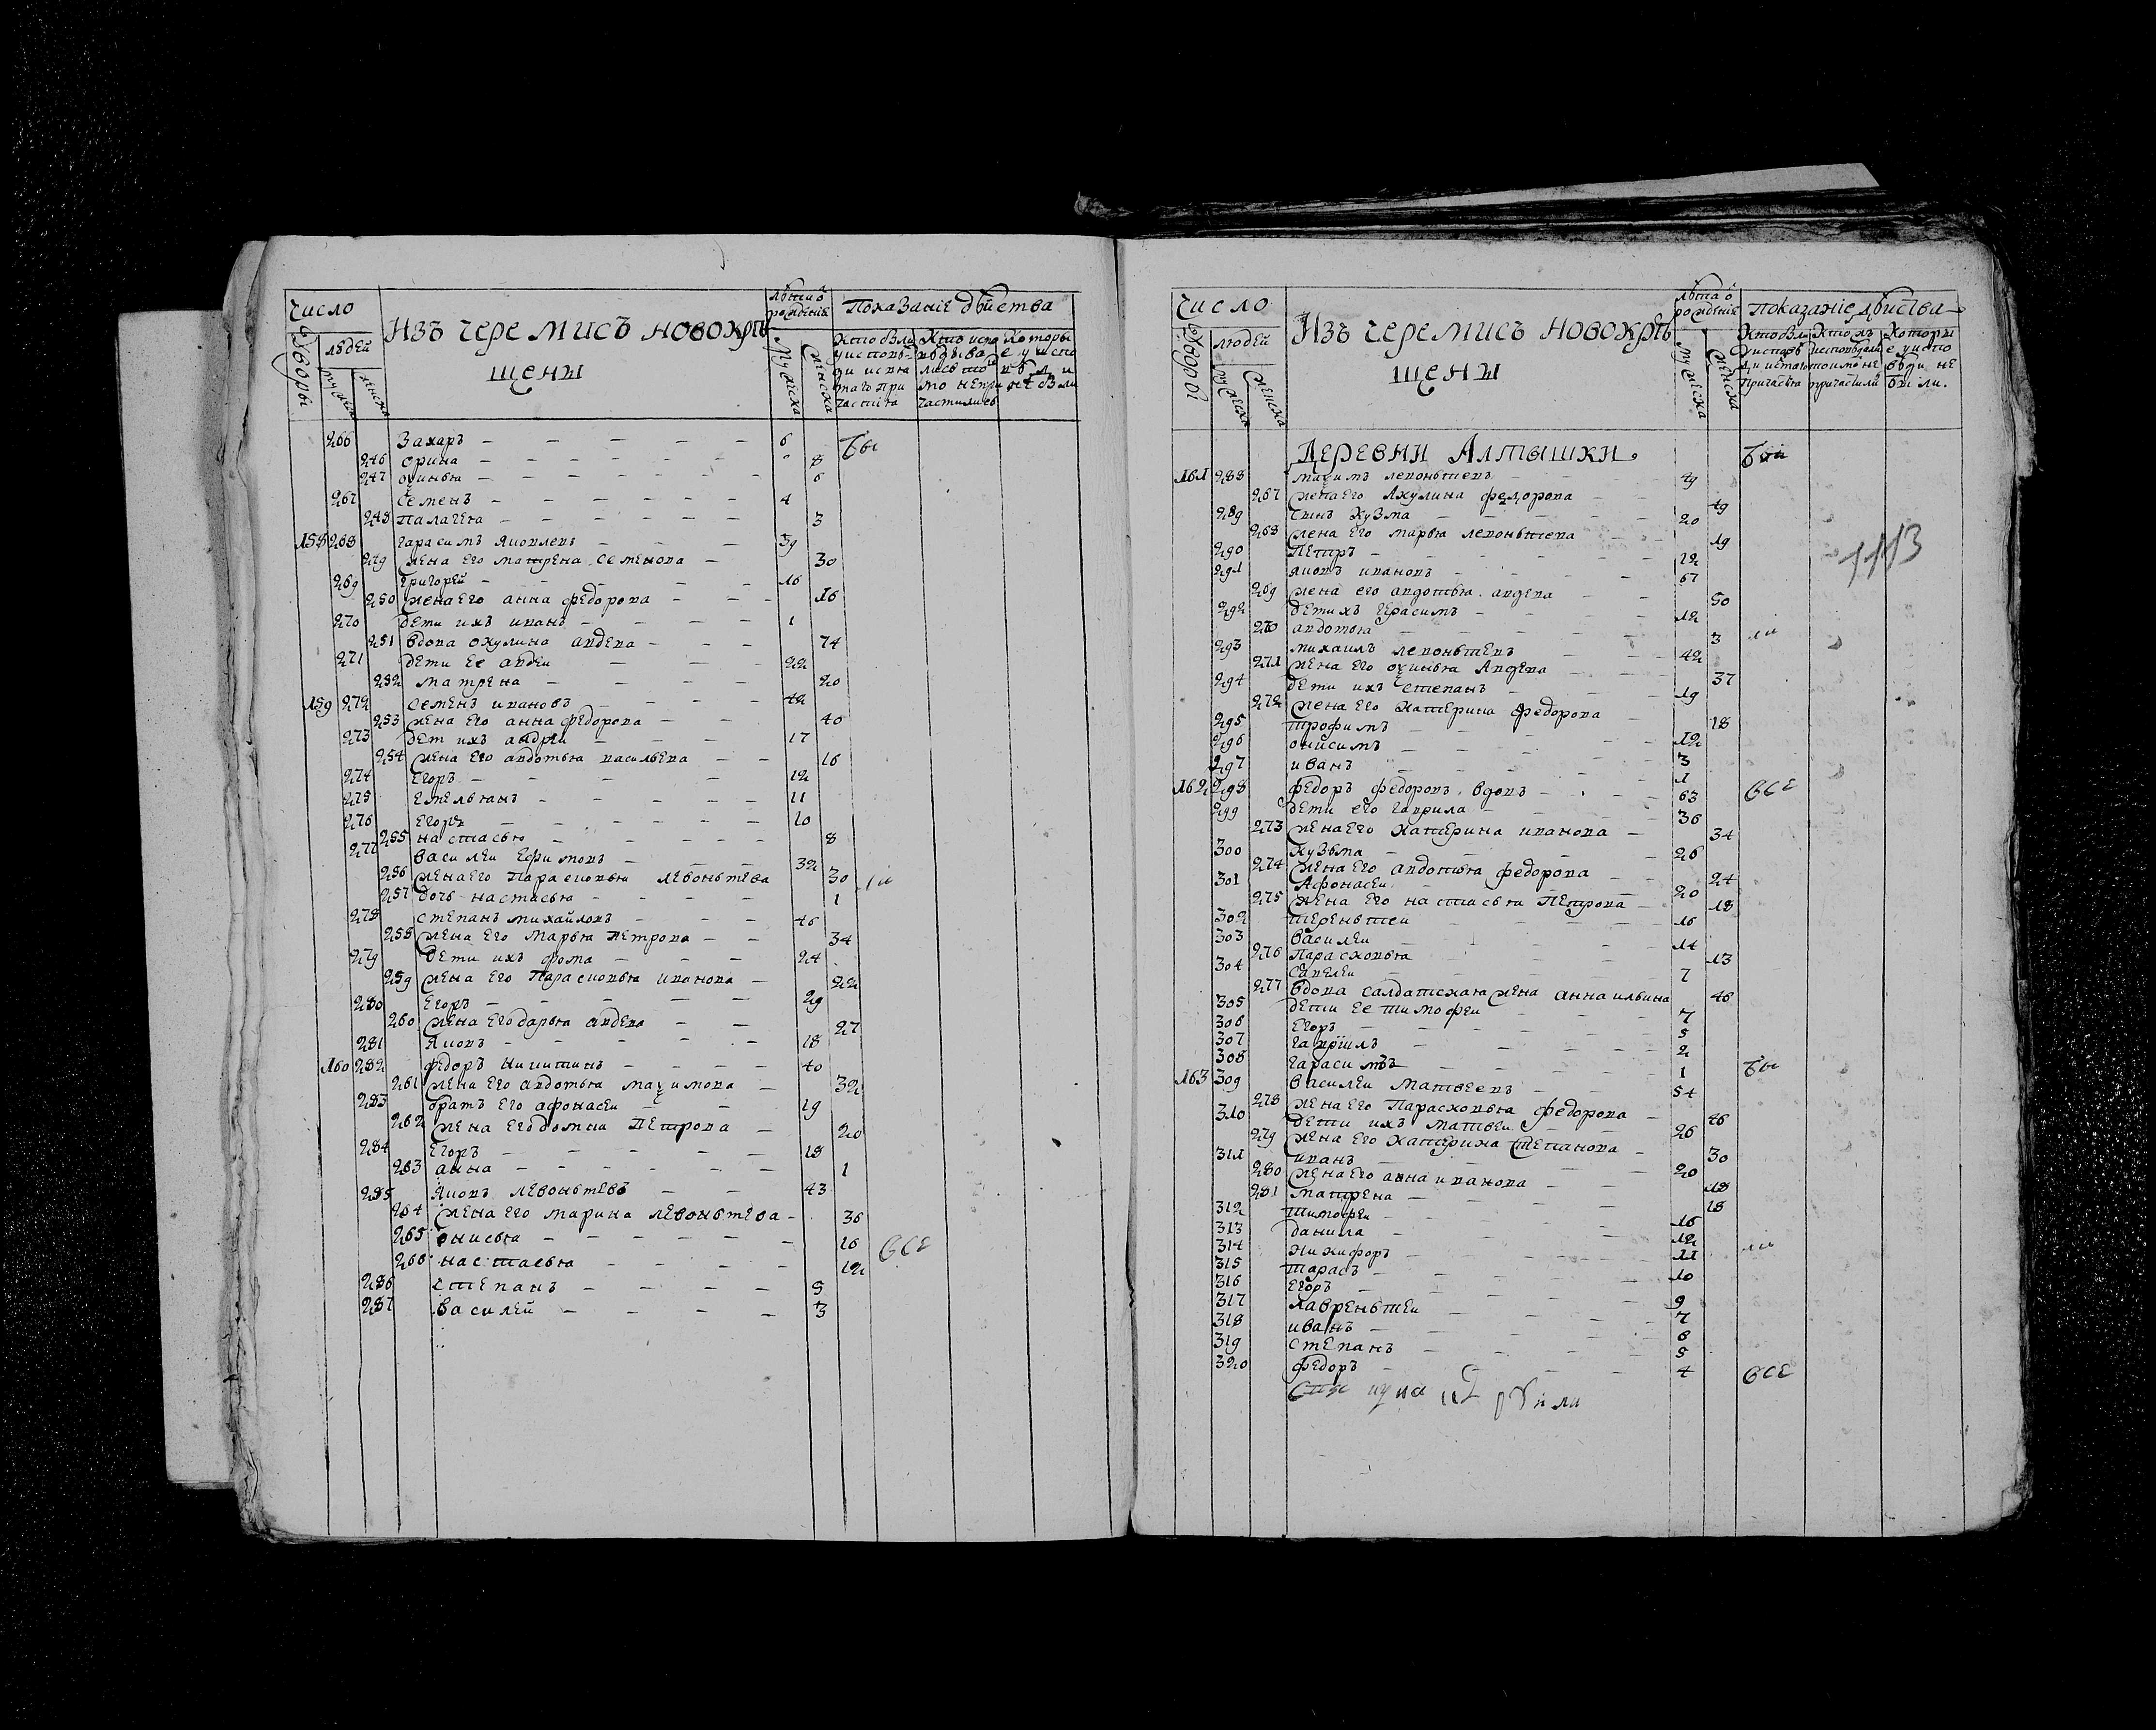 число
Изъ черемисъ новокре
щены
лѣта ѿ рожденїя
Показанїе дѣйства
дворы
людей
мужеска
женска
мужеска
женска
266 Захаръ 6 Бы
246 орина 8
247 оѯинья 6
267 семенъ 4
248 палагея 3
158 268 гарасимъ яковлевъ 39
249 жена его матрена семенова 30
269 григорей 16
250 жена его анна федорова 16
270 дети ихъ иванъ 1
251 вдова окулина авдева 74
271 дети ее авдеи 22
252 матрена 20
159 272 семенъ ивановъ 42
253 жена его анна федорова 40
273 дет ихъ андреи 17
254 жена его авдотья васильева 16
274 Егоръ 12
275 емельянъ 11
276 Егоръ 10
255 настасья 8
277 василеи ефимовъ 32
256 жена его парасковья левонътева 30 ли
257 дочь настасья 1
278 степанъ михайловъ 46
258 жена его марья петрова 34
279 дети ихъ фома 24
259 жена его парасковья иванова 22
280 Егоръ 29
260 жена его дарья авдева 27
281 яковъ 18
160 282 федоръ никитинъ 40
261 жена его авдотья маѯимова 32
283 братъ его афонасеи 19
262 жена его домна петрова 20
284 Егоръ 18
263 анна 1
285 яковъ левонътевъ 43
264 жена его марина левонътева 36
265 онисья 16 все
266 настасья 12
286 степанъ 5
287 василей 3
число
Изъ черемисъ новокре
щены
лѣта ѿ рожденїя
показанїе дѣйства
дворы
людей
мужеска
женска
мужеска
женска
Деревни Алтышки Бы
161 288 маѯимъ левонътевъ 49
267 жена его Акулина федорова 49
289 сынъ кузма 20
268 жена его марья левонътева 19
290 петръ 12
291 яковъ ивановъ 67
269 жена его авдотья авдева 50
292 дети ихъ герасимъ 12
270 авдотья 3 ли
293 михаилъ левонътевъ 42
271 жена его оѯинья Авдева 37
294 дети ихъ степанъ 19
272 жена его катерина федорова 18
295 трофимъ 12
296 онисимъ 3
297 иванъ 1
162 298 федоръ федоровъ вдовъ 63 все
299 дети его гаврила 36
273 жена его катерина иванова 34
300 кузьма 26
274 жена его авдотья федорова 24
301 Афонасеи 20
275 жена его настасья петрова 18
302 терентеи 16
303 василеи 14
276 парасковья 13
304 савелеи 7
277 вдова салдатская жена анна ильина 46
305 дети ее тимофеи 7
306 Егоръ 5
307 гаврїилъ 2
308 гарасимъ 1
163 309 василеи матвеевъ 54 Бы
278 жена его парасковья федорова 46
310 дети ихъ матвеи 26
279 жена его катерина степанова 30
311 иванъ 20
280 жена его анна иванова 18
281 матрена 18
312 тимофеи 16
313 данила 12
314 никифоръ 11 ли
315 тарасъ 10
316 Егоръ 9
317 лаврентеи 7
318 иванъ 6
319 степанъ 5
320 федоръ 4 все